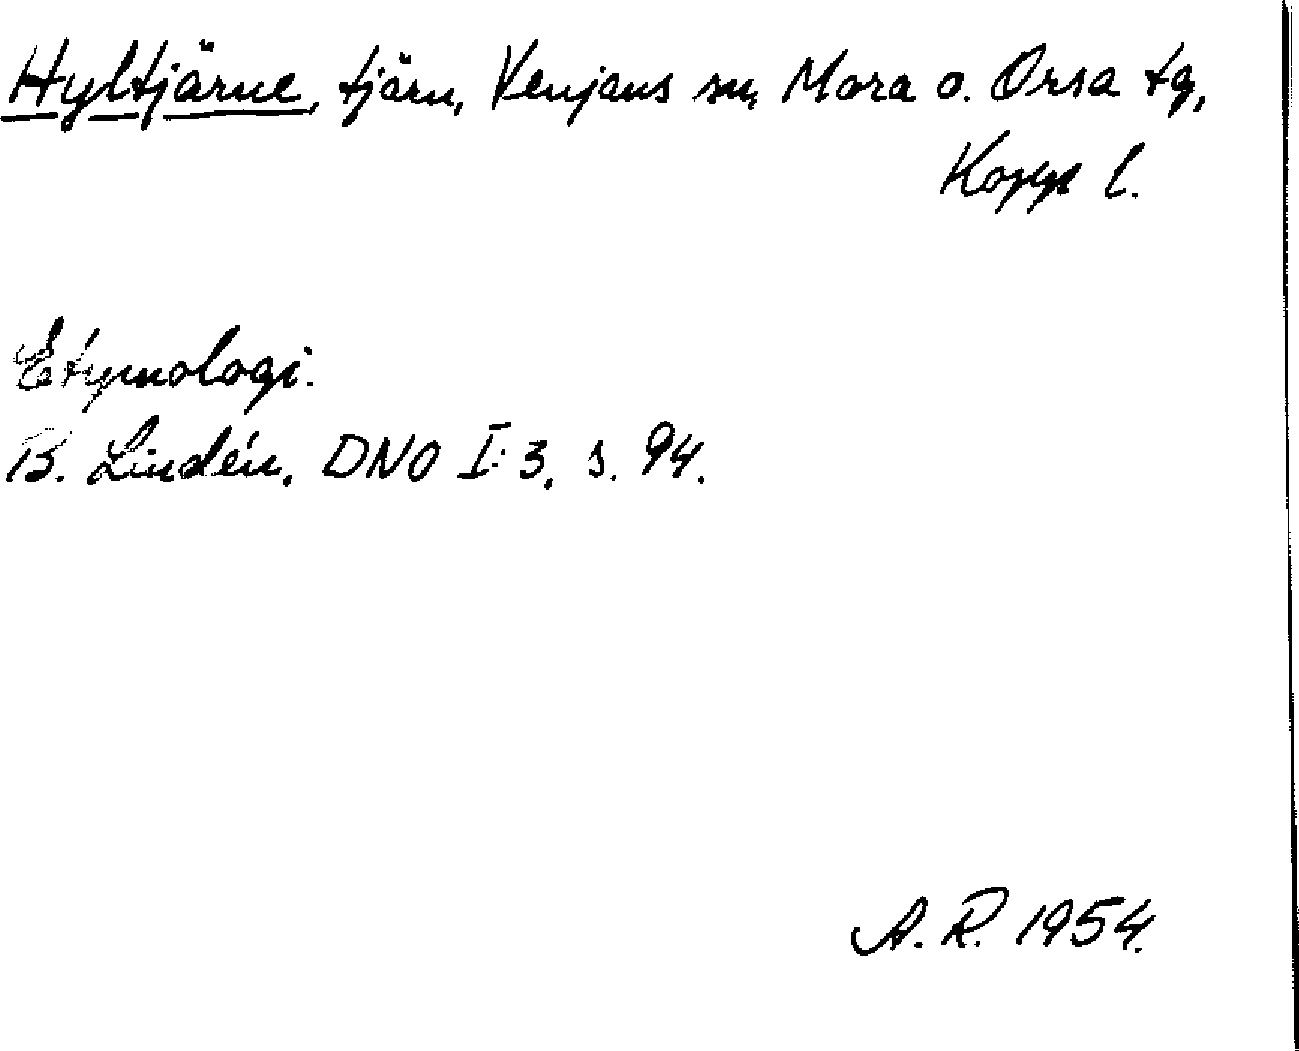 Hyltjärne, tjärn, Venjans sn, Mora o. Orsa tg,
Kopp l.
Etymologi.
B. Lindén, DNO I:3, s. 94.
A. R. 1954.